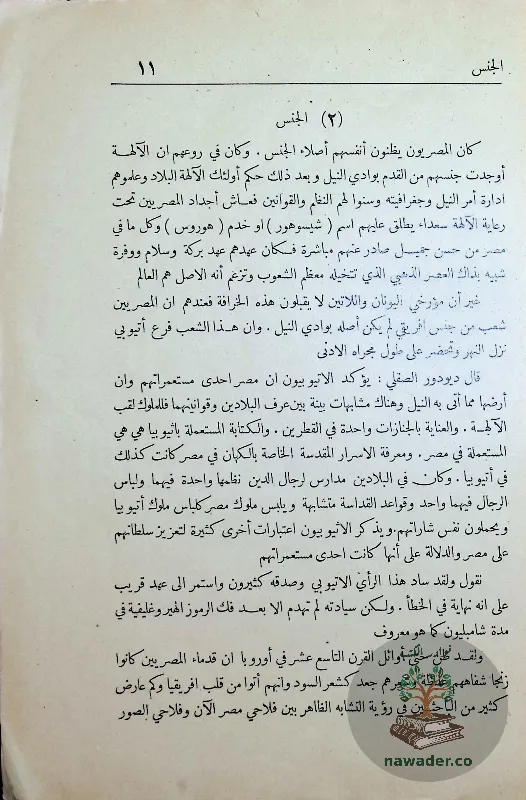 الجنس
١١
(٢) الجنس
كان المصريون يظنون أنفسهم أصلاء الجنس . وكان في روعهم ان الآلهـة
أوجدت جنسهم من القدم بوادي النيل وبعد ذلك حكم أولئك الآلهة البلاد وعلموهم
ادارة أمر النيل وجغرافيته وسنوا لهم النظم والقوانين فعـاش أجداد المصريين تحت
رعاية الآلهة سعداء يطلق عليهم اسم ( شيسوهور ) او خدم ( هوروس ) وكل ما في
مصر من حسن جميـل صادر عنهم مباشرة فـكان عهدهم عهد بركة وسلام ووفرة
شبيه بذاك العصر الذهبي الذي تتخيله معظم الشعوب وتزعم أنه الاصل هم العالم
غير أن مؤرخي اليونان واللاتين لا يقبلون هذه الخرافة فعندهم ان المصريين
شعب من جنس افريقي لم يكن أصله بوادي النيل . وان هـذا الشعب فرع أتيوبي
نزل النهر وتحضر على طول مجراه الادنى
قال ديودور الصقلي : يؤكد الاتيوبيون ان مصر احدى مستعمراتهم وان
أرضها مما أتى به النيل وهناك مشابهات بينة بين عرف البلادين وقوانينهما فللملوك لقب
الآلهـة . والعناية بالجنازات واحدة في القطرين . والكتابة المستعملة باثيوبيا هي هي
المستعملة في مصر . ومعرفة الاسرار المقدسة الخاصة بالكهان في مصر كانت كذلك
في أتيوبيا . وكان في البلادين مدارس لرجال الدين نظامها واحدة فيهما ولباس
الرجال فيهما واحد وقواعد القداسة متشابهة ويلبس ملوك مصر كلباس ملوك أتيوبيا
ويحملون نفس شاراتهم. ويذكر الاتيوبيون اعتبارات أخرى كثيرة لتعزيز سلطانهم
على مصر والدلالة على أنها كانت احدى مستعمراتهم
نقول ولقد ساد هذا الرأي الاتيوبي وصدقه كثيرون واستمر الى عهد قريب
على انه نهاية في الخطأ . ولكن سيادته لم تهدم الا بعد فك الرموز الهيروغليفية في
مدة شامبليون كما هو معروف
ولقـد ظن حتى أوائل القرن التاسع عشر في أوروبا ان قدماء المصريين كانوا
زنجا شفاههم غليظة وشعرهم جعد كشعر السود وانهم أتوا من قلب افريقيا وكم عارض
كثير من الباحثين في رؤية التشابه الظاهر بين فلاحي مصر الآن وفلاحي الصور
nawader.co